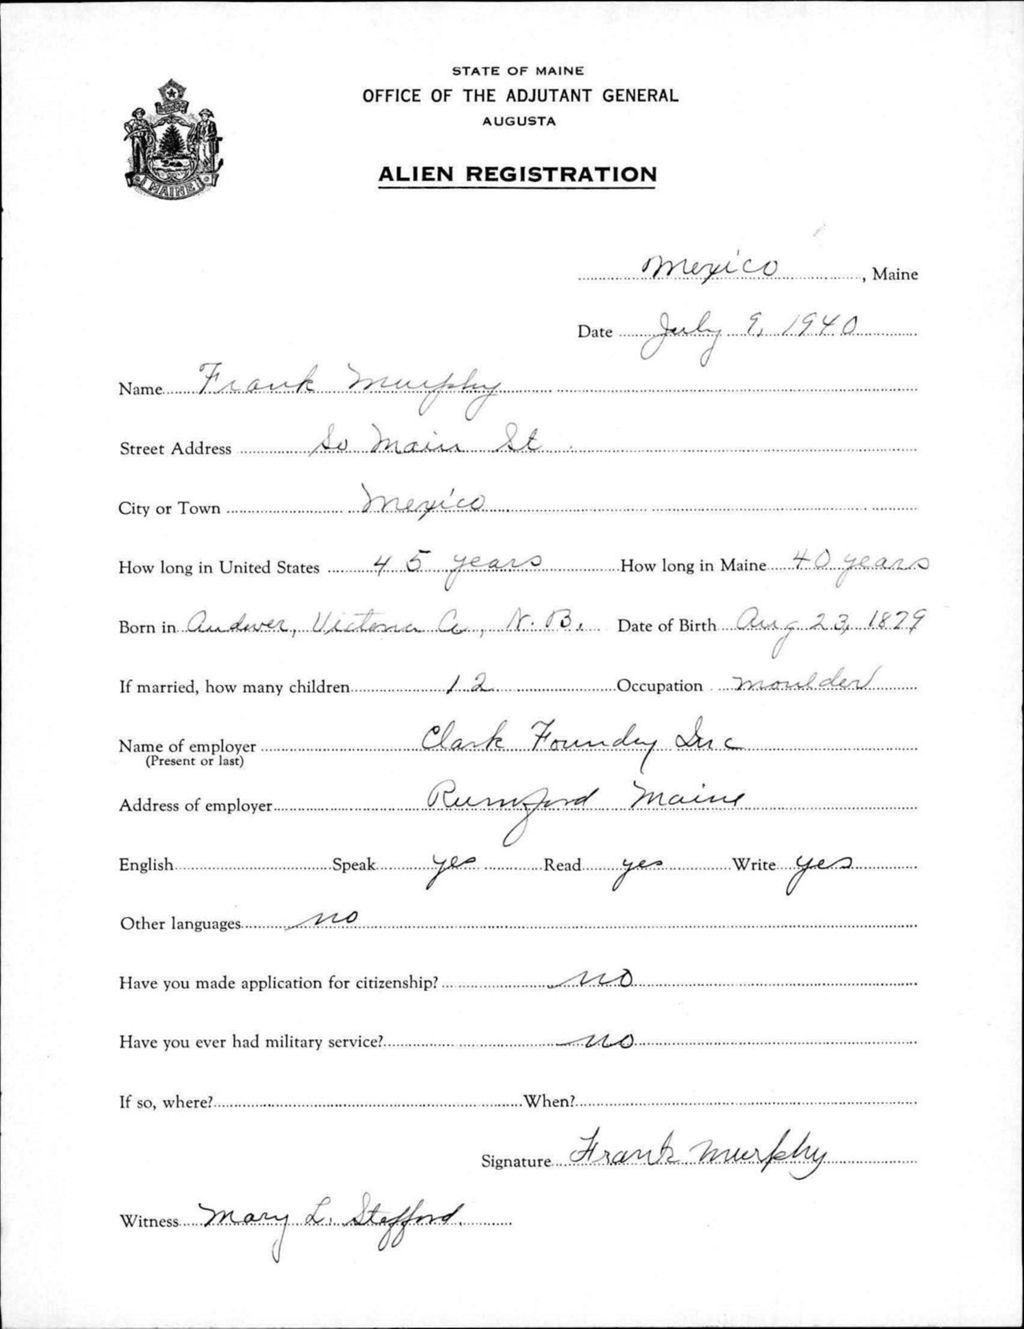 STATE OF MAINE
OFFICE OF THE ADJUTANT GENERAL
AUGUSTA
ALIEN REGISTRATION
MAINE
Mexico, Maine
Date July 9, 1940
Name Frank Murphy
Street Address So Main St
City or Town Mexico
How long in United States 45 years How long in Maine 40 years
Born in Andver, Victoria Co, N.B. Date of Birth Aug 23, 1879
If married, how many children 12 Occupation moulder
Name of employer Clark Foundry Inc
(Present or last)
Address of employer Rumford Maine
English Speak yes Read yes Write yes
Other languages no
Have you made application for citizenship? no
Have you ever had military service? no
If so, where? When?
Signature Frank Murphy
Witness Mary L. Stafford.